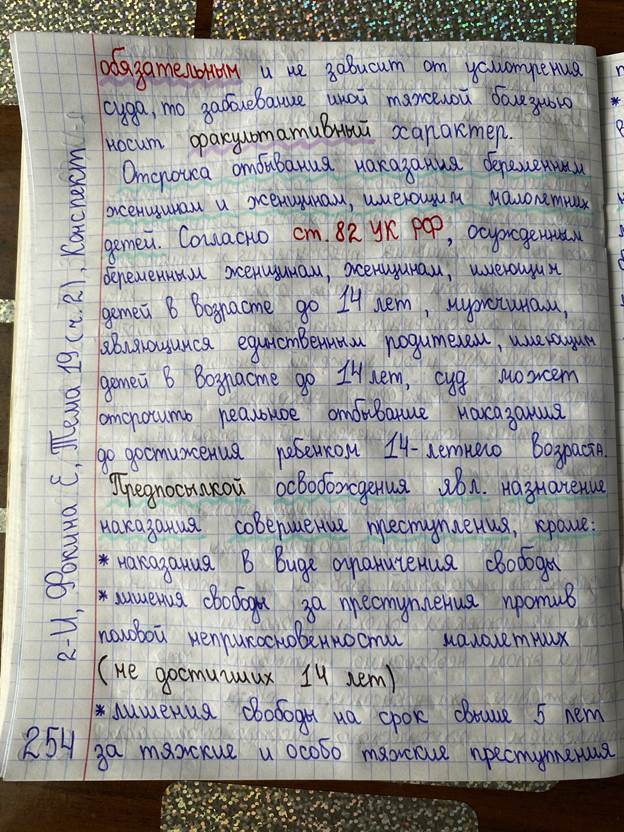 обязательным и не зависит от усмотрения
суда, то заболевание иной тяжелой болезнью
носит факультативный характер.
Отсрочка отбывания наказания беременным
женщинам и женщинам, имеющим малолетних
детей. Согласно ст. 82 УК РФ, осужденным
беременным женщинам, женщинам, имеющим
детей в возрасте до 14 лет, мужчинам,
являющимся единственным родителем, имеющим
детей в возрасте до 14 лет, суд может
отсрочить реальное отбывание наказания
до достижения ребенком 14-летнего возраста.
Предпосылкой освобождения явл. назначение
наказания совершение преступления, кроме:
* наказания в виде ограничения свободы
* лишения свободы за преступления против
половой неприкосновенности малолетних
(не достигших 14 лет)
* лишения свободы на срок свыше 5 лет
за тяжкие и особо тяжкие преступления
254
2-И, Фокина Е, Тема 19 (ч. 2), Конспект